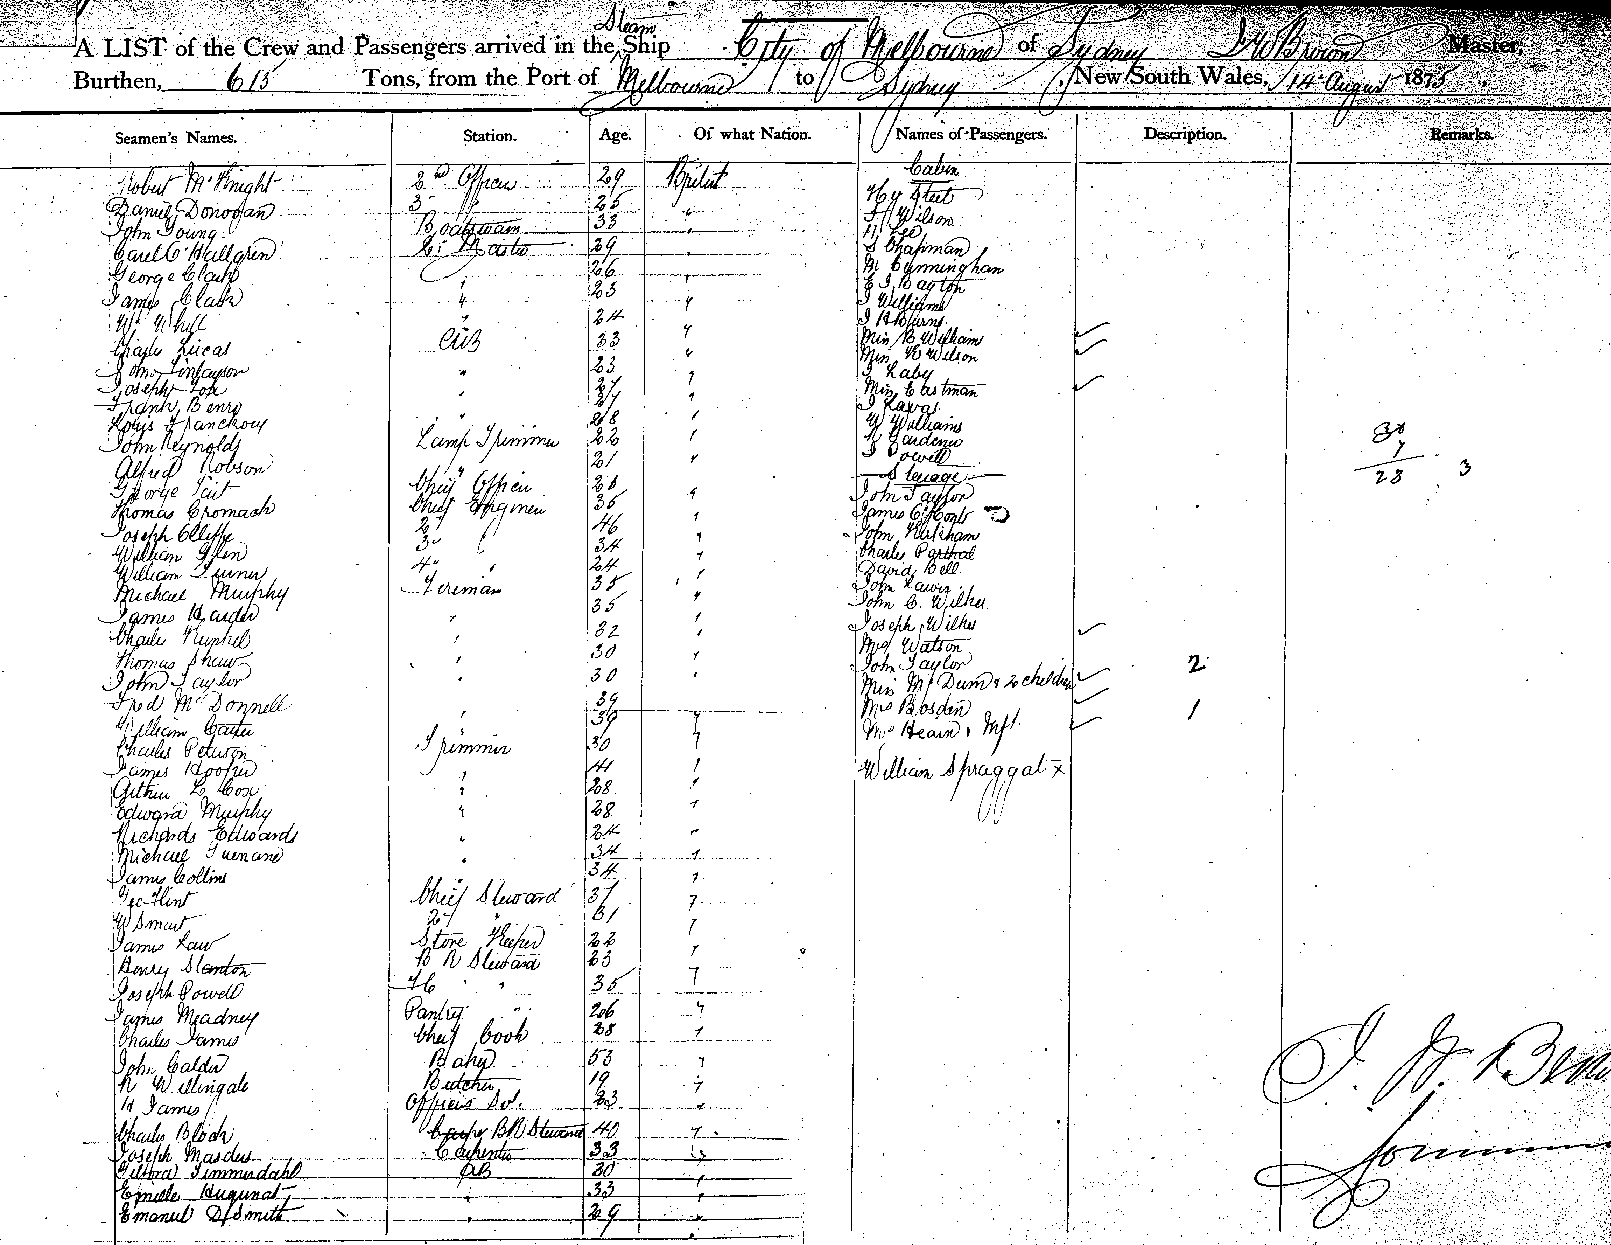 A LIST of the Crew and Passengers arrived in the Steam Ship City of Melbourne of Sydney J W Brown Master,
Burthen, 615 Tons, from the Port of Melbourne to Sydney, New South Wales, 14 August 1875
Seamen's Names. Station. Age. Of what Nation. Names of Passengers. Description. Remarks.
Cabin
Robert McKnight 2nd Officer 29 British Hy Steel
Daniel Donovan 3 " 25 " J Wilson
John Young Boatswain 33 " Lee
Carl C Hallgren Qr Master 29 " S Chapman
George Clark 26 M Cunningham
James Clark " 23 " E J Bayton
Wm Whill " 24 " J Williams
J H Burns
Charles Lucas AB 33 " Miss B Williams
John Finlayson " 23 " Miss K Wilson
Joseph Fox " 27 " J Laby
Frank Benro " 27 " Miss Eastman
Louis Franckow " 28 " J
John Reynolds Lamp Trimmer 22 " W Williams
Alfred Robson " 21 " Gardener 30
George Tait Chief Officer 26 J Powell 7
Steerage 23 3
Thomas Cromach Chief Engineer 35 " John Taylor
Joseph Cliffe 2 " 46 " James C
William Glen 3 " 34 " John Kirkham
William Turner 4 " 24 " Charles
Michael Murphy Fireman 35 " David Bell
James Harder " 35 " John Lawis
Charles " 32 " John C. Wilkes
Thomas Shaw " 30 " Joseph Wilkes
John Taylor " 30 " Mrs Watson
Fred McDonnell 39 John Taylor 2
William Carter " 39 " Miss McDum & 2 children
Charles Peterson Trimmer 30 " Mrs Bosden 1
James Hooper " 41 " Mrs Hearn & Inft.
Arthur L Cox " 28 " William Spraggat x
Edward Murphy " 28 "
Richards Edwards " 24 "
Michael " 34 "
James Collins 34 "
Geo Flint Chief Steward 37 "
W Smart 2 " 31 "
James Law Store Keeper 22 "
Henry Stanton B R Steward 23 "
Joseph Powell " " 35 "
James Meadney Pantry " 26 "
Charles James Chief Cook 28 "
John Calder Baker 53 "
R Willingale Butcher 19 "
H James Officers Svt. 23 "
Charles Block BR Steward 40 "
Joseph Masdus Carpenter 33 "
Timmerdahl AB 30 "
Emille Hugunat " 33 "
Emanuel D Smith " 29 "
J. W. Brown